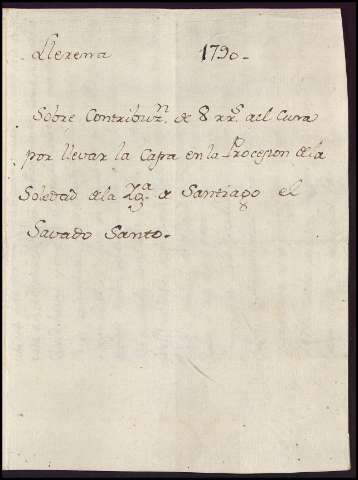 Llerena 1790.
Sobre Contribuz.n de 8 rr.s al Cura
por llevar la Capa en la Procesion de la
Soledad de la Yg.a de Santiago el
Savado Santo.